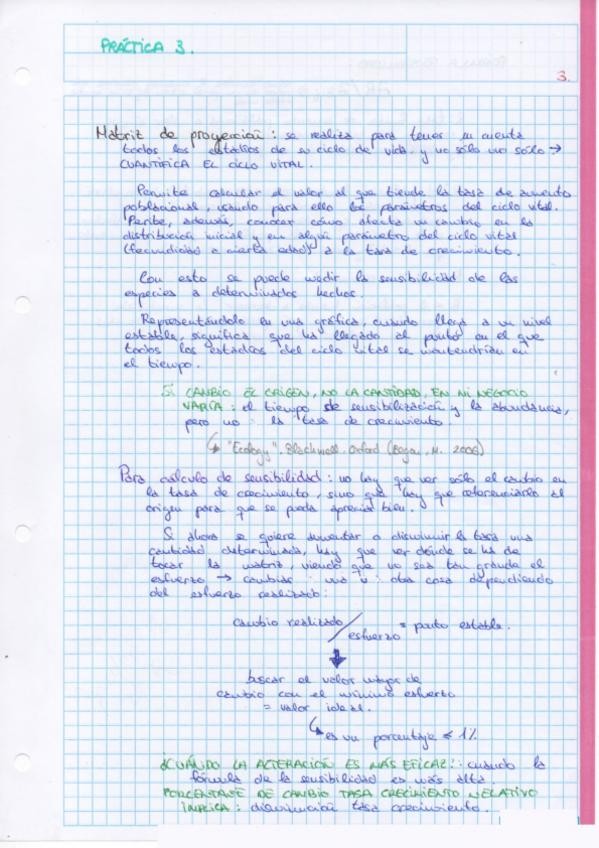 PRÁCTICA 3.
3.
Matriz de proyección: se realiza para tener en cuenta
todos los estadios de su ciclo de vida y no sólo uno sólo →
CUANTIFICA EL CICLO VITAL.
Permite calcular el valor al que tiende la tasa de aumento
poblacional, usando para ello los parámetros del ciclo vital.
Perite, además, conocer cómo afecta un cambio en la
distribución inicial y en algún parámetro del ciclo vital
(fecundidad a cierta edad) a la tasa de crecimiento.
Con esto se puede medir la sensibilidad de las
especies a determinados hechos.
Representándolo en una gráfica, cuando llega a un nivel
estable, significa que ha llegado al punto en el que
todos los estadios del ciclo vital se mantendrían en
el tiempo.
SI CAMBIO EL ORIGEN, NO LA CANTIDAD, EN MI NEGOCIO
VARÍA: el tiempo de sensibilización y la abundancia,
pero no: la tasa de crecimiento.
↳ "Ecology". Blackwell. Oxford (Begon, M. 2006)
Para cálculo de sensibilidad: no hay que ver sólo el cambio en
la tasa de crecimiento, sino que hay que referenciarlo al
origen para que se pueda apreciar bien.
Si ahora se quiere aumentar o disminuir la tasa una
cantidad determinada, hay que ver dónde se ha de
tocar la matriz, viendo que no sea tan grande el
esfuerzo → cambiar una u otra cosa dependiendo
del esfuerzo realizado:
cambio realizado/esfuerzo = punto estable.
buscar el valor mayor de
cambio con el mínimo esfuerzo
= valor ideal.
↳ es un porcentaje ≤ 1%
¿CUÁNDO LA ALTERACIÓN ES MÁS EFICAZ?: cuando la
fórmula de la sensibilidad es más alta.
PORCENTAJE DE CAMBIO TASA CRECIMIENTO NEGATIVO
IMPLICA: disminución tasa crecimiento.